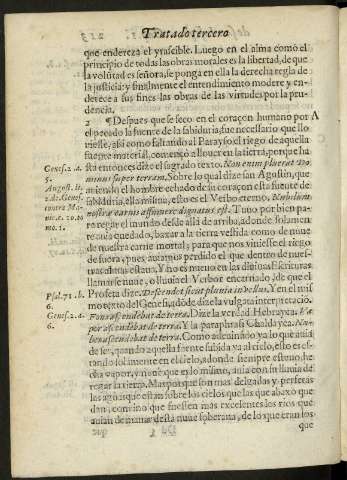 Tratado tercero
que endereza el yrascible. Luego en el alma como el
principio de todas las obras morales es la libertad, de que
la volūtad es señora, se ponga en ella la derecha regla de
la justicia: y finalmente el entendimiento modere y en-
derece a sus fines las obras de las virtudes por la pru-
dencia.
2 ¶ Despues que se seco en el coraçon humano por A
el pecado la fuente de la sabiduria, fue necessario que llo
uiesse, assi como faltando al Parayso el riego de aquella
fuente material, començò a llouer en la tierra, porque ha
sta entonces dize el sagrado texto. Non enim pluerat Do
minus super terram. Sobre lo qual dize san Agustin, que
auiendo el hombre echado de su coraçon esta fuente de
sabiduria, ella misma, esto es el Verbo eterno, Nubilum
nostræ carnis assumere dignatus est. Tuuo por bien pa-
ra regar el mundo desde alli de arriba, adonde solamen
te auia quedado, baxar a la tierra vestida como de nuue
de nuestra carne mortal; para que nos viniesse el riego
de fuera, pues auiamos perdido el que dentro de nues-
tras almas estaua. Y no es nueuo en las diuinas Escrituras
llamarse nuue, o lluuia el Verbo encarnado, de que el
Profeta dize. Descendet sicut pluuia in vellus. Y en el mis
mo texto del Genesis, adōde dize la vulgata interpretaciō.
Fons ascendebat de terra. Dize la verdad Hebrayca. Va
por ascendebat de terra. Y la paraphrasi Chaldayca. Nu-
bes ascendebat de terra. Como
de ser, quando aquella fuente subida ya al cielo, esto es es-
tando solamente en el cielo, adonde siempre estuuo, he
cha vapor, y nuue que es lo mismo, auia con su lluuia de
regar la tierra. Mas porque son mas delgadas y perfetas
las aguas que estan sobre los cielos que las que abaxo que
dan, conuino que fuessen mas excelentes los rios que
auian de manar desta nuue soberana, de lo que eran los
que
Genes. 2. a.
5.
August. li.
2. de Genes.
contra Ma-
nic. c. 20. to
mo. 1.
Psal. 71. b.
6.
Genes. 2. a.
6.